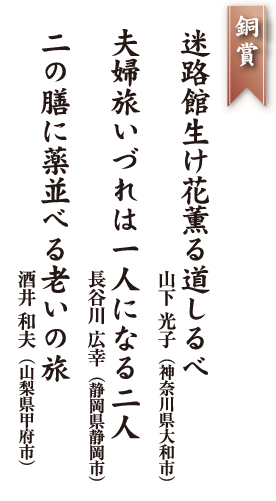 銅賞
迷路館生け花薫る道しるべ
山下 光子（神奈川県大和市）
夫婦旅いづれは一人になる二人
長谷川 広幸（静岡県静岡市）
二の膳に薬並べる老いの旅
酒井 和夫（山梨県甲府市）